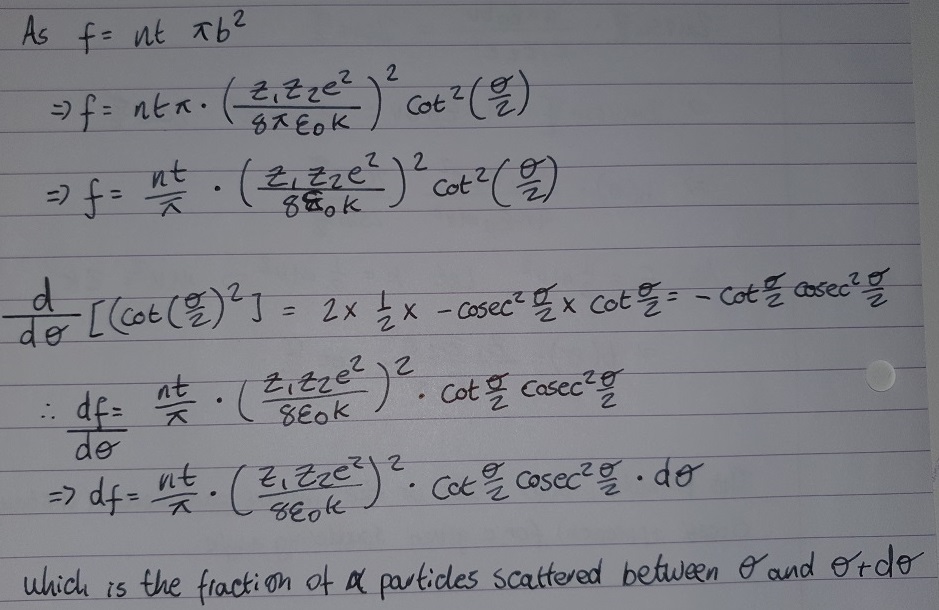 As f = nt πb²
⇒ f = ntπ · (Z₁Z₂e² / 8πε₀K)² cot²(θ/2)
⇒ f = nt/π · (Z₁Z₂e² / 8ε₀K)² cot²(θ/2)
d/dθ [(cot(θ/2)²] = 2 × 1/2 × -cosec² θ/2 × cot θ/2 = - cot θ/2 cosec² θ/2
∴ df/dθ = nt/π · (Z₁Z₂e² / 8ε₀K)² · cot θ/2 cosec² θ/2
⇒ df = nt/π · (Z₁Z₂e² / 8ε₀K)² · cot θ/2 cosec² θ/2 · dθ
which is the fraction of α particles scattered between θ and θ+dθ